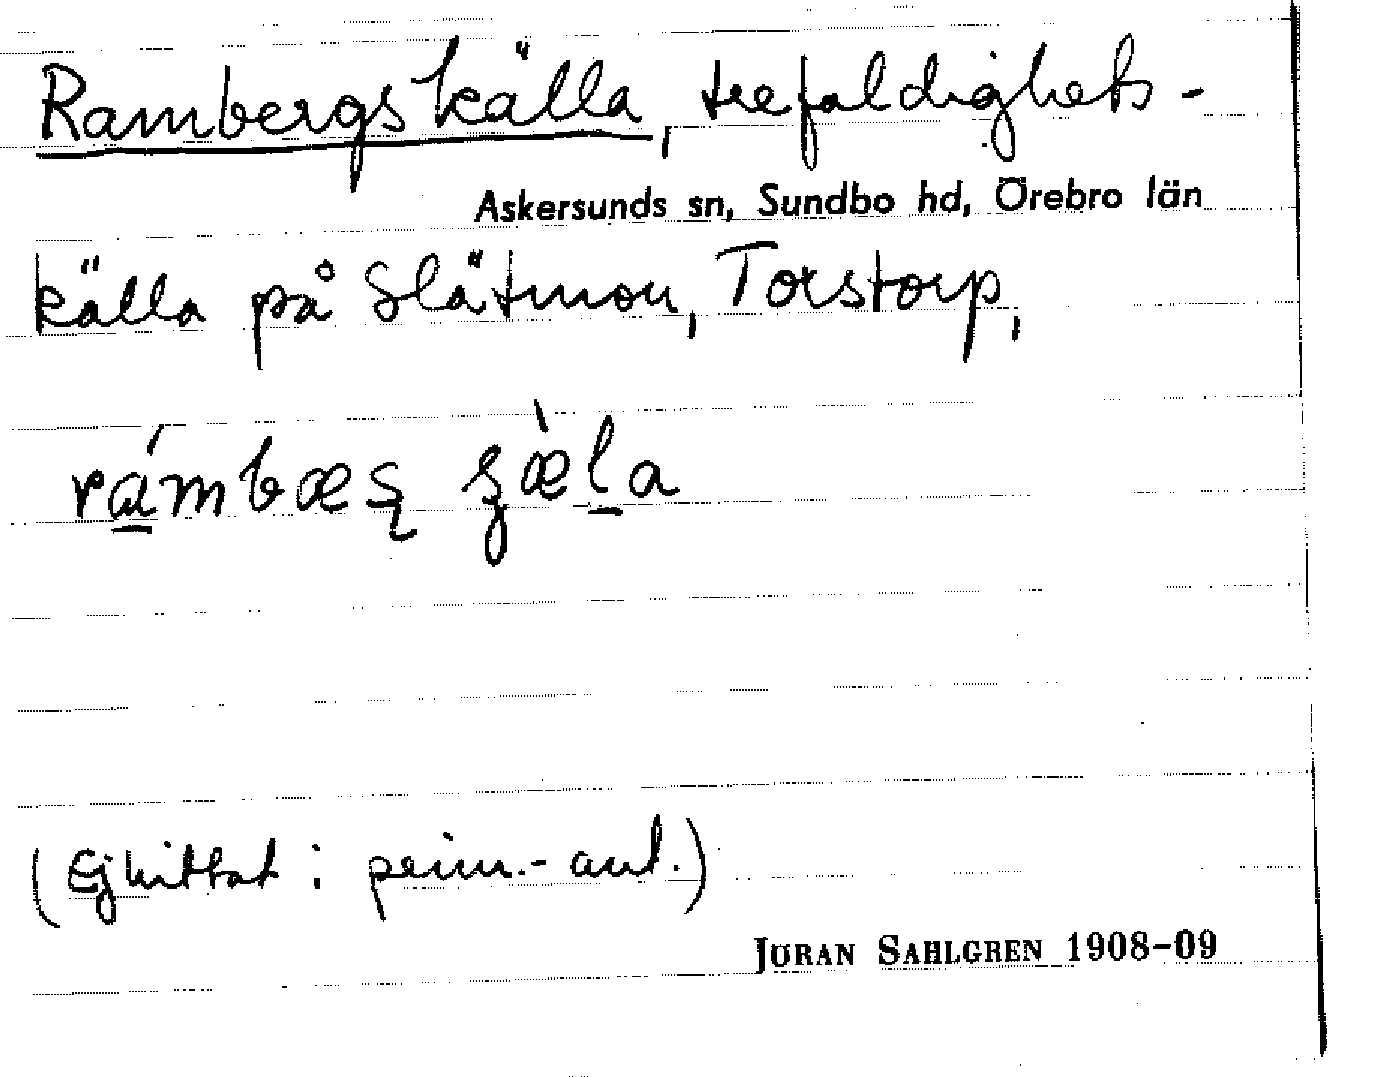 Rambergs källa, trefaldighets-
Askersunds sn, Sundbo hd, Örebro län
källa på Slätmon, Torstorp,
rámbæs̨ ʂæ̀l̲a
(Ej hittat i prim.-ant.)
JÖRAN SAHLGREN 1908-09